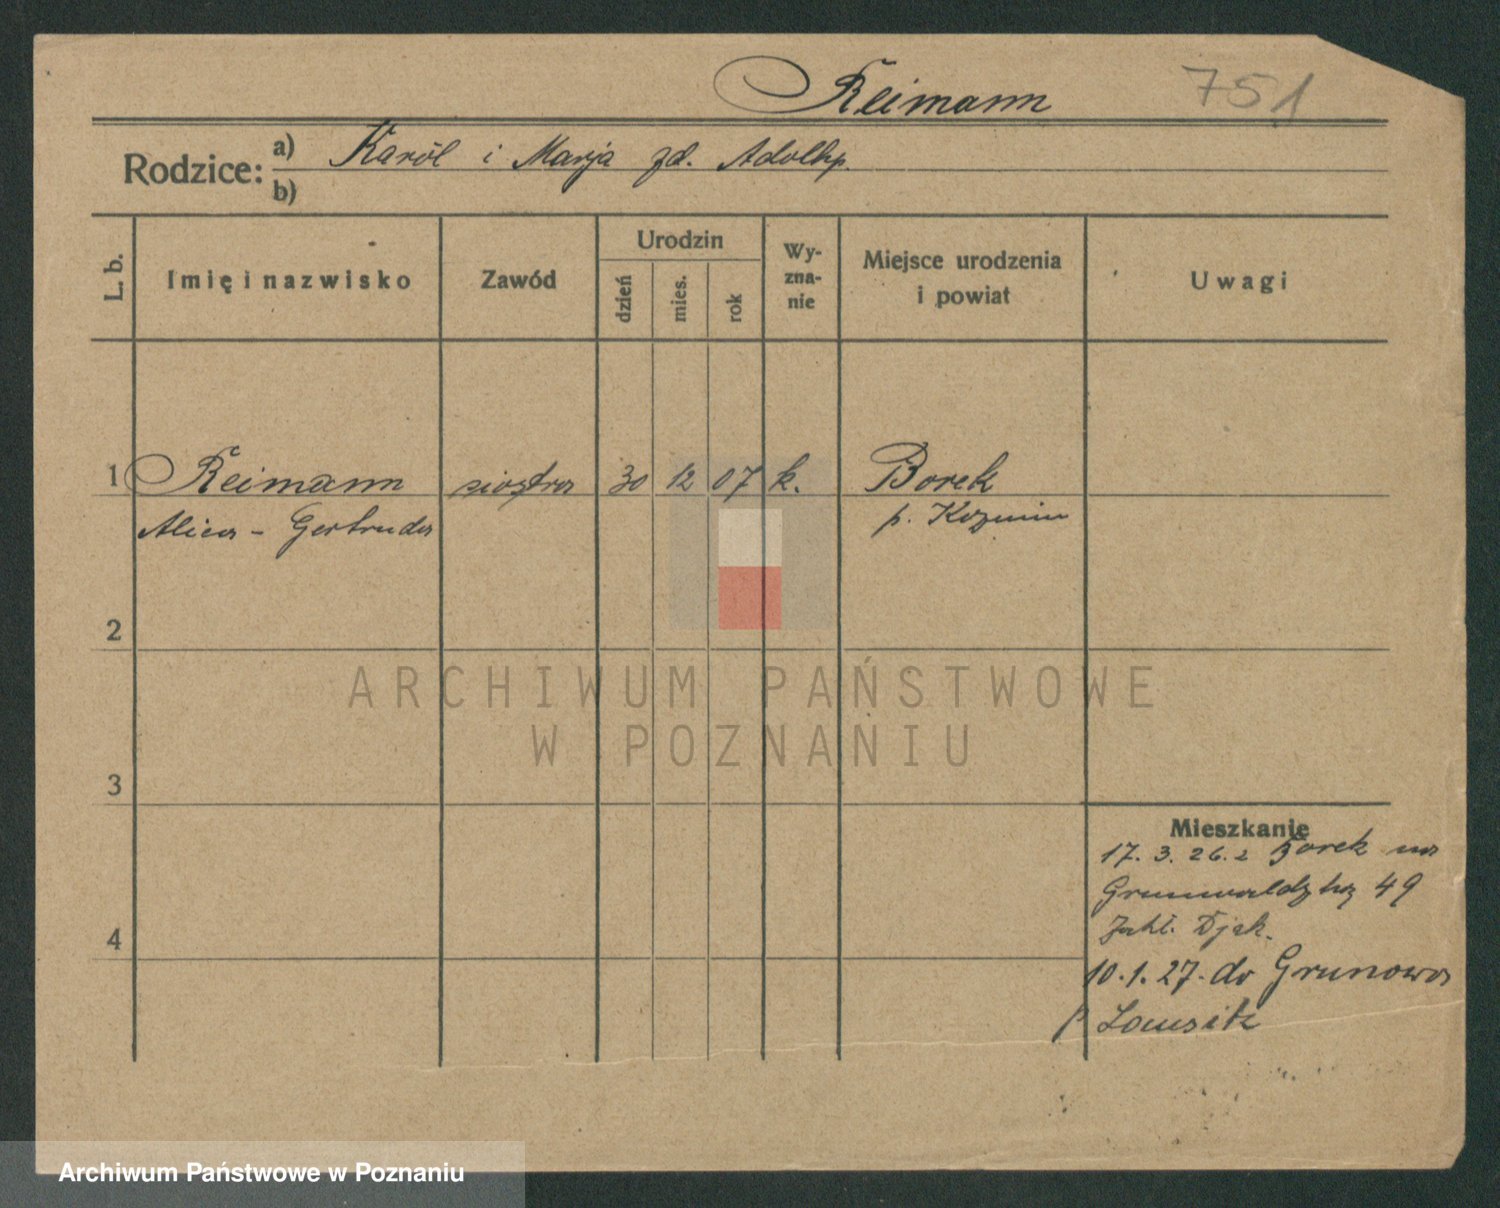 Reimann 751
Rodzice: a) Karól i Marja zd. Adolkp.
b)
L. b.
Imię i nazwisko
Zawód
Urodzin
dzień
mies.
rok
Wy-
zna-
nie
Miejsce urodzenia
i powiat
Uwagi
1 Reimann siostra 30 12 07 k. Borek
Alica - Gertruda p. Kozmin
2
3
4
Mieszkanie
17. 3. 26. z Borek na
Grunwaldzką 49
Zakł. Djak.
10. 1. 27. do Grunowa
p Lausitz
ARCHIWUM PAŃSTWOWE
W POZNANIU
Archiwum Państwowe w Poznaniu